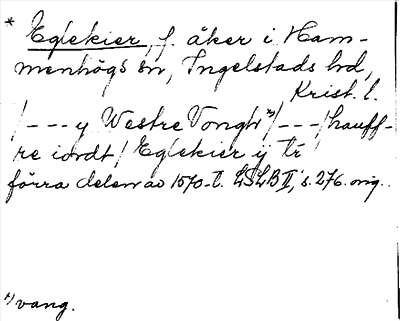 * Eglekier, f. åker i Ham-
menhögs sn, Ingelstads hd,
Krist. l.
/---y Westre Vongh x)/---/hauff-
re iordt/ Eglekier ij tr
förra delen av 1570-t. LSLB II, s. 276. orig.
x) vang.